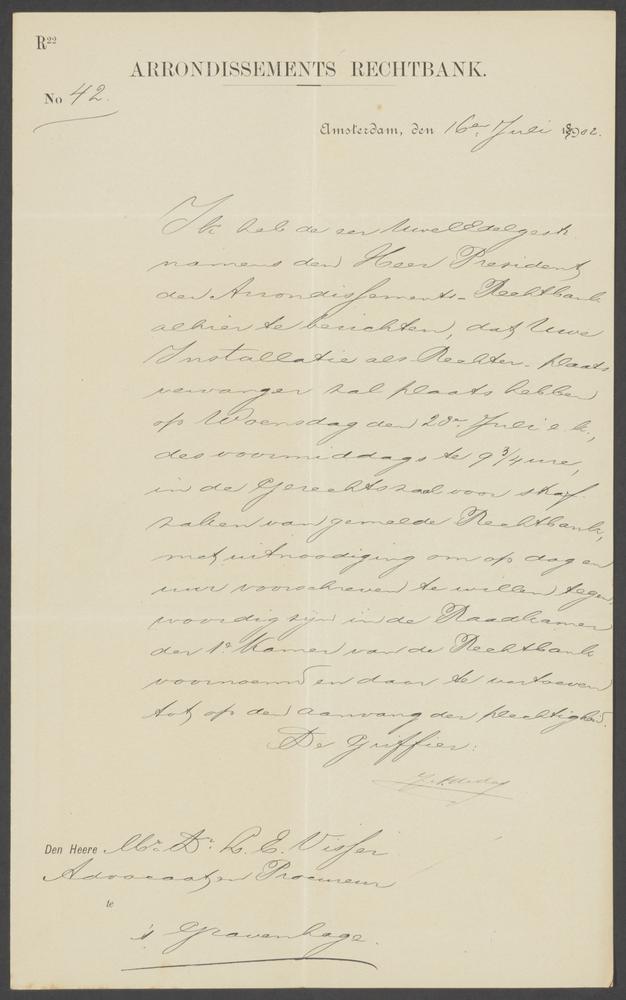 R22
ARRONDISSEMENTS RECHTBANK.
No 42.
Amsterdam, den 16en Juli 1902.
Ik heb de eer UwelEdelgestr.
namens den Heer President
der Arrondissements-Rechtbank
alhier te berichten, dat Uwe
Installatie als Rechter-plaats
vervanger zal plaats hebben
op Woensdag den 23en Juli e.k.,
des voormiddags te 9 3/4 ure,
in de Gerechtszaal voor straf-
zaken van gemelde Rechtbank,
met uitnoodiging om op dag en
uur voorschreven te willen tegen
woordig zijn in de Raadkamer
der 1e Kamer van de Rechtbank
voornoemd en daar te vertoeven
tot op den aanvang der plechtigheid.
De Griffier:
Den Heere Mr. Dr. L. E. Visser
Advocaat en Procureur
te
's Gravenhage.